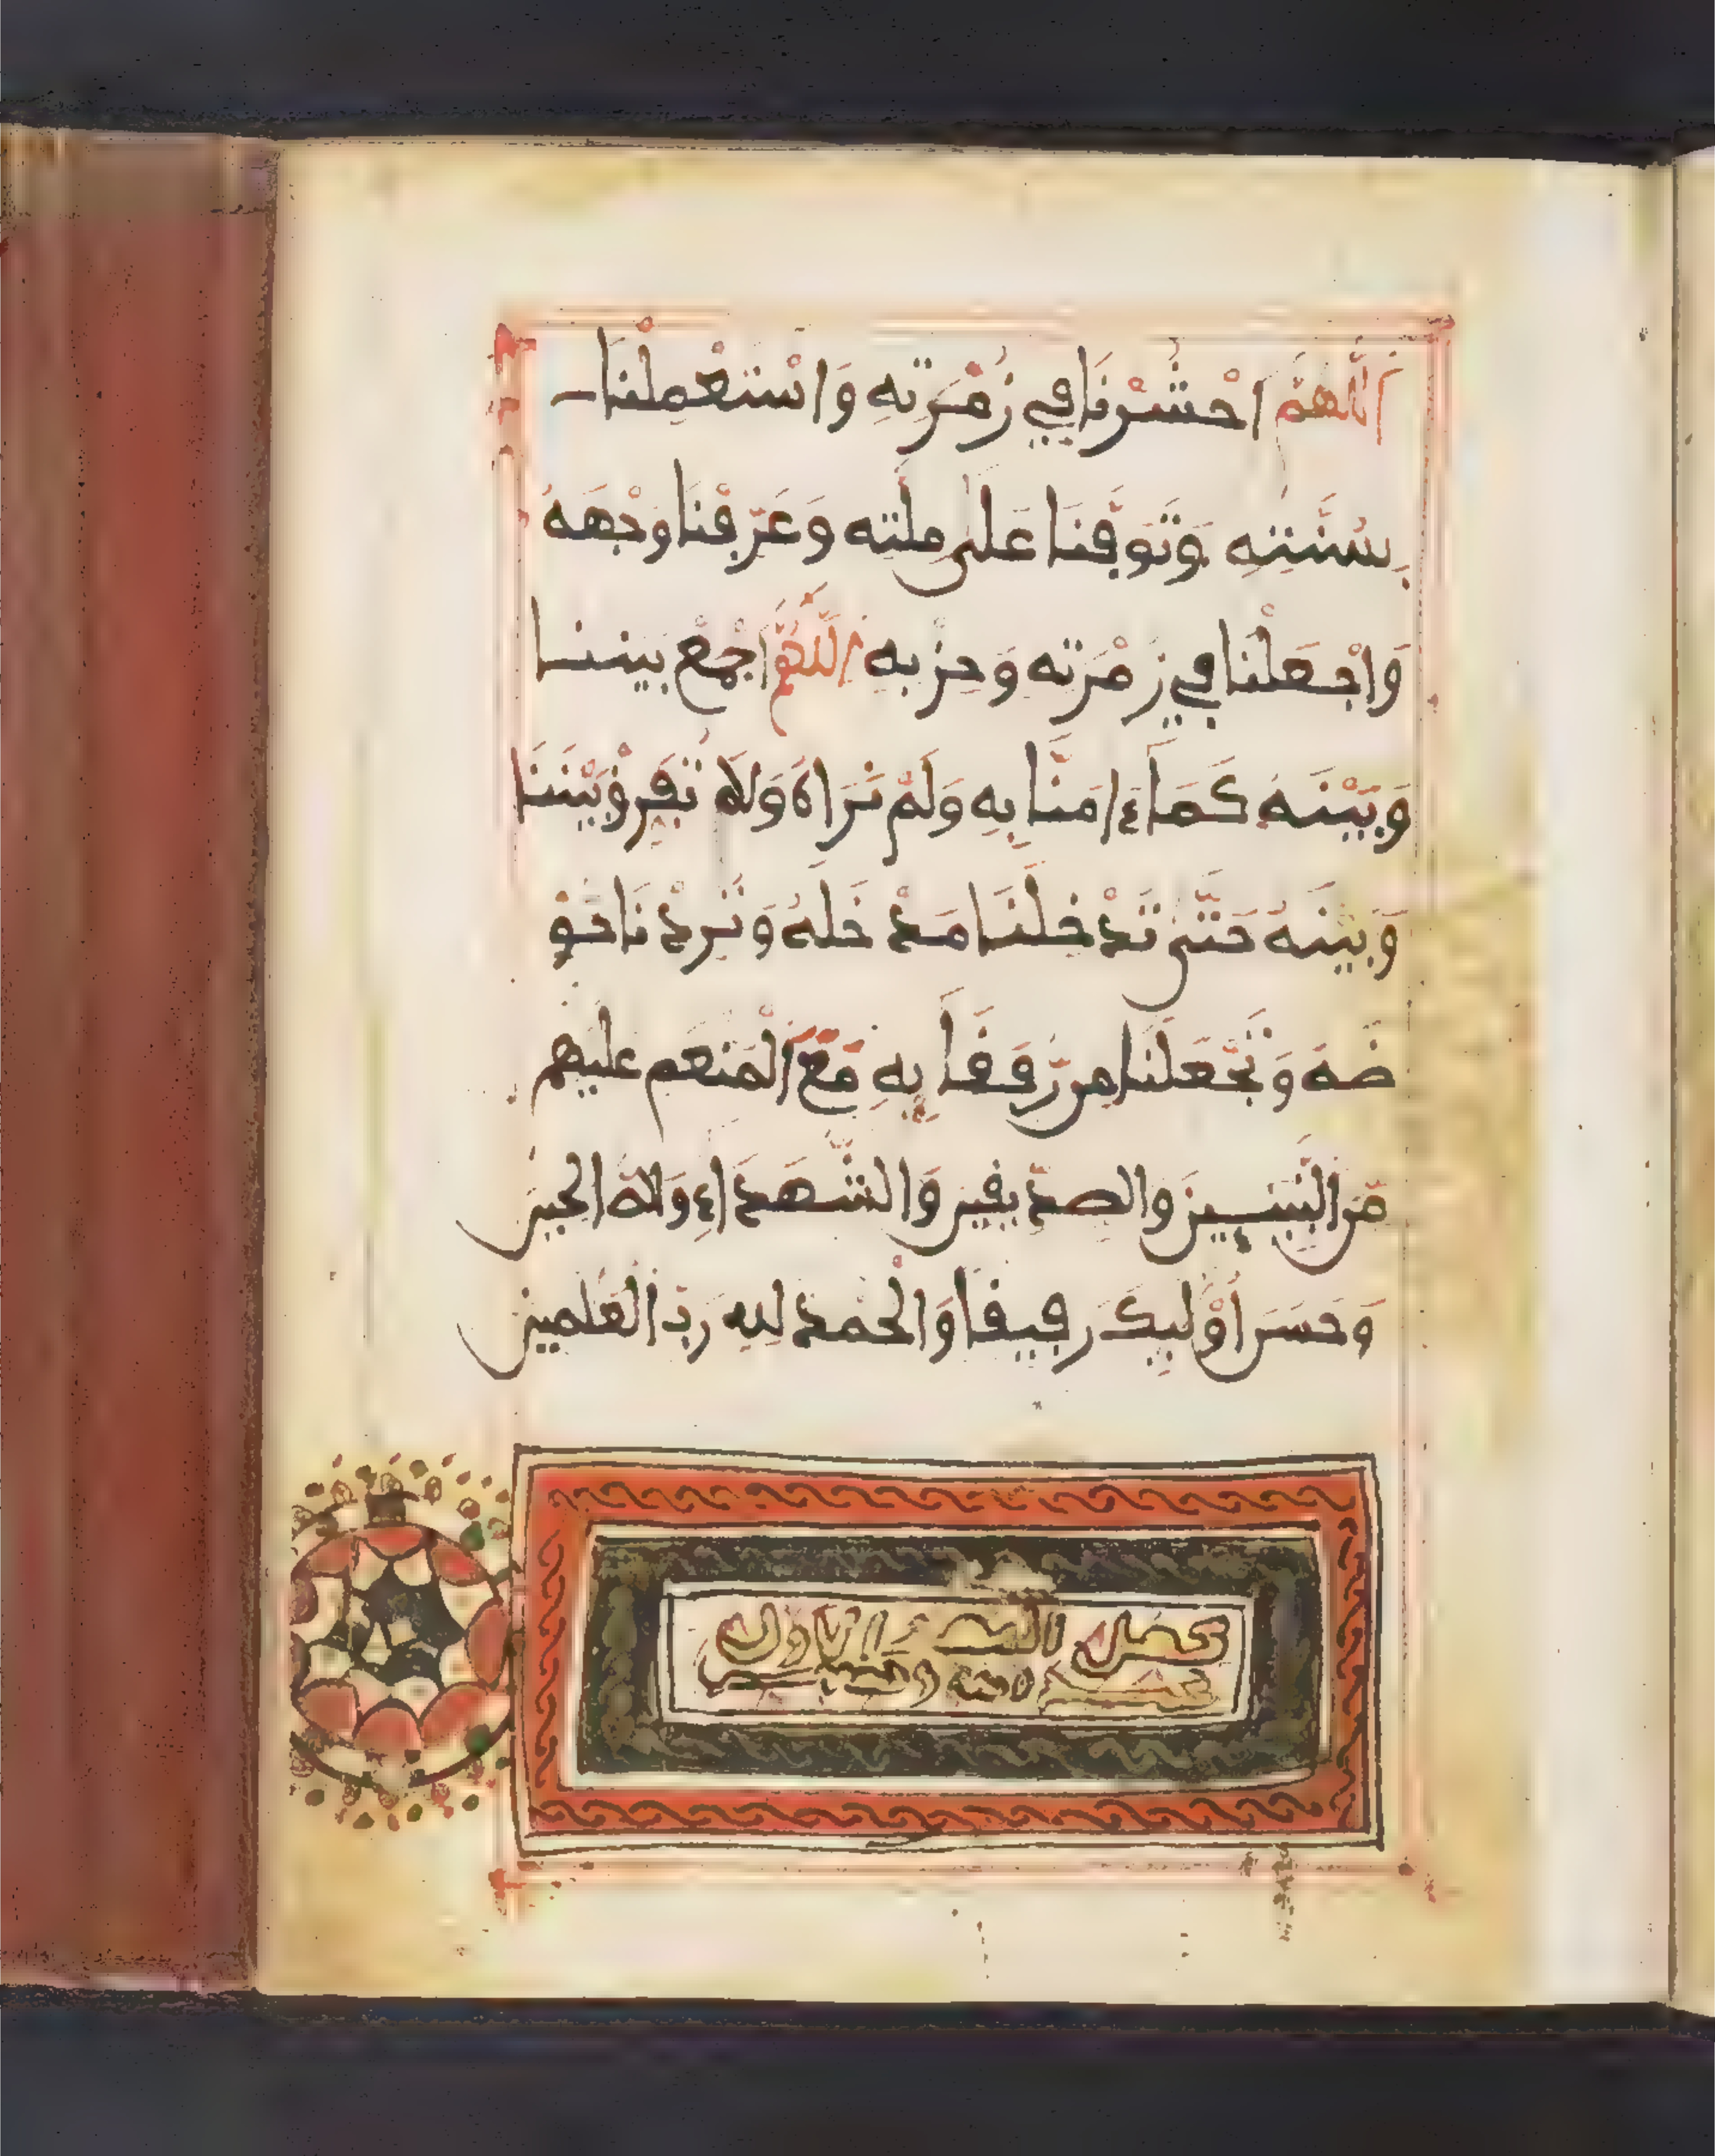 اَللَّهُمَّ احْشُرْنَا فِي زُمْرَتِهِ وَاسْتَعْمِلْنَا
بِسُنَّتِهِ وَتَوَفَّنَا عَلَى مِلَّتِهِ وَعَرِّفْنَا وَجْهَهُ
وَاجْعَلْنَا فِي زُمْرَتِهِ وَحِزْبِهِ اَللَّهُمَّ اجْمَعْ بَيْنَنَا
وَبَيْنَهُ كَمَا ءَامَنَّا بِهِ وَلَمْ نَرَاهُ وَلَا تُفَرِّقْ بَيْنَنَا
وَبَيْنَهُ حَتَّى تُدْخِلَنَا مَدْخَلَهُ وَتُرِدْنَا حَوْ
ضَهُ وَتَجْعَلَنَا مِن رُّفَقَآ بِهِ مَعَ الْمُنْعَمِ عَلَيْهِم
مِّنَ النَّبِيِّينَ وَالصِّدِّيقِينَ وَالشُّهَدَاءِ وَ
وَحَسُنَ أُوْلَٰئِكَ رَفِيقًا وَالْحَمْدُ لِلهِ رَبِّ الْعَٰلَمِينَ